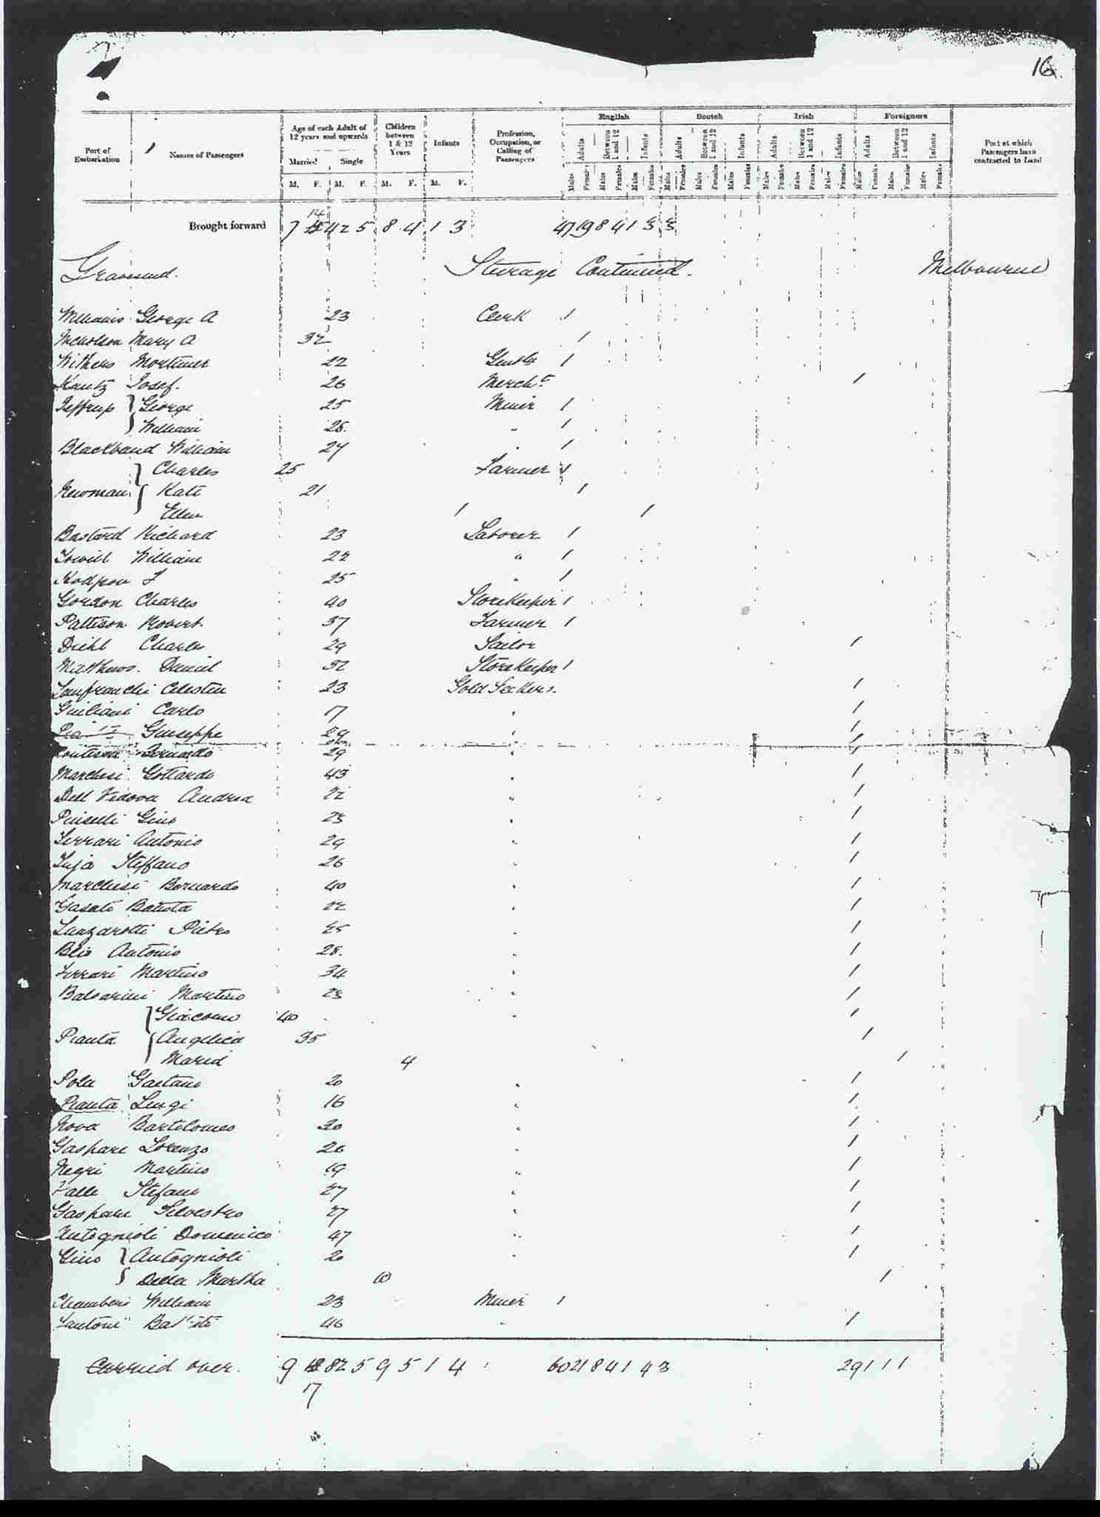 16
Port of Embarkation Names of Passengers Age of each Adult of 12 years and upwards Children between 1 & 12 Years Infants Profession, Occupation, or Calling of Passengers English Scotch Irish Foreigners Port at which Passengers have contracted to Land
Married Single Adults Between 1 and 12 Infants Adults Between 1 and 12 Infants Adults Between 1 and 12 Infants Adults Between 1 and 12 Infants
M. F. M. F. M. F. M. F. Males Females Males Females Males Females Males Females Males Females Males Females Males Females Males Females Males Females Males Females Males Females Males Females
14
Brought forward 7 42 5 8 4 1 3 47 19 8 4 1 3 3
Gravesend. Steerage Continued. Melbourne
Williams George A 23 Clerk 1
Nicholson Mary A 32 1
Withers Mortimer 22 1
Kautz Josef. 26 Mercht 1
George 25 Miner 1
William 28 " 1
Blackband William 24 " 1
Charles 25 Farmer 1
Newman Kate 21 1
Ellen 1 1
Bastard Richard 23 Laborer 1
William 22 " 1
25 " 1
Gordon Charles 40 Storekeeper 1
Pattison Robert 37 Farmer 1
Diehl Charles 29 Sailor 1
Matthews Daniel 32 Storekeeper 1
Lanfranchi Celestin 23 Gold Seekers. 1
Giuliani Carlo 17 " 1
Giuseppe 29 " 1
Bernardo 29 " 1
Marchesi Gottardo 43 " 1
Dell Vedova Andrea 22 " 1
Gino 23 " 1
Ferrari Antonio 29 " 1
Steffano 26 " 1
Marchesi Bernardo 40 " 1
Battista 22 " 1
Lanzarotti Pietro 25 " 1
Antonio 28. " 1
Ferrari Martino 34 " 1
Balsarini Martino 23 " 1
Giacomo 40 " 1
Pianta Angelica 35 1
Maria 4 1
Pola Gaetano 20 " 1
Pianta Luigi 16 " 1
Rova Bartolomeo 20 " 1
Gaspare Lorenzo 26 " 1
Negri Martino 19 " 1
Valle Stefano 27 " 1
Gaspare Silvestro 27 " 1
Antognioli Domenico 47 " 1
Gino Antognioli 20 " 1
Della Martha 10 1
Chambers William 23 Miner 1
Santoni 46 " 1
Carried over. 9 82 5 9 5 1 4 60 21 8 4 1 4 3 29 1 1 1
17